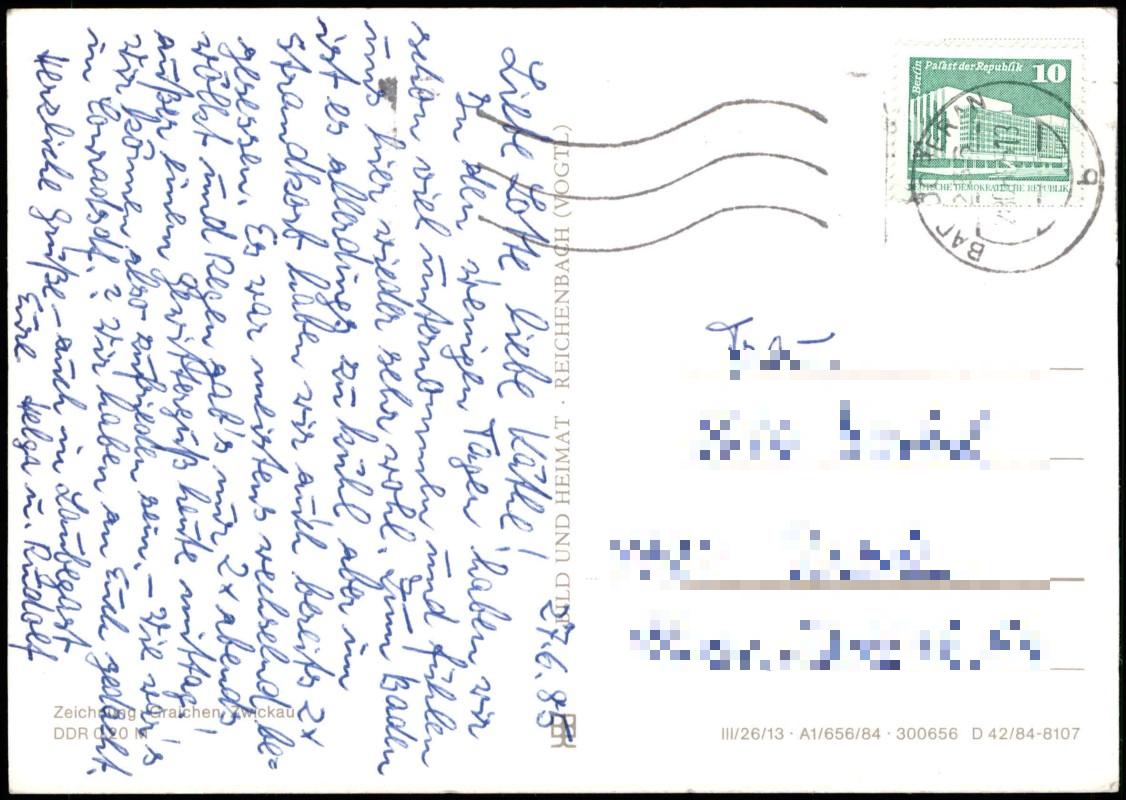 27.6.85
Liebe Lotte, liebe Käthe!
In den wenigen Tagen haben wir
schon viel unternommen und fühlen
uns hier wieder sehr wohl. Zum Baden
ist es allerdings zu kühl aber im
Strandkorb haben wir auch bereits 2x
gesessen. Es war meistens wechselnd be-
wölkt und Regen gab's nur 2x abends
außer einem Gewitterguß heute mittag!
Wir können also zufrieden sein. – Wie war's
in ? Wir haben an Euch gedacht.
Herzliche Grüße – auch in Laubegast
Eure Helga u. Rudolf
Zeichnung: Graichen, Zwickau
DDR 0,20 M
BILD UND HEIMAT · REICHENBACH (VOGTL)
Berlin Palast der Republik 10
DEUTSCHE DEMOKRATISCHE REPUBLIK
BAD DOBERAN
Frau
III/26/13 · A1/656/84 · 300656 D 42/84-8107